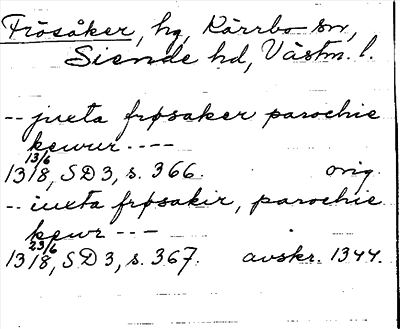 Frösåker, hg, Kärrbo sn,
Siende hd, Västm. l.
-- juxta frøsaker parochie
kewur ----
13 13/6 18, SD 3, s. 366. orig.
-- iuxta frøsakir, parochie
kewr ---
13 23/6 18, SD 3, s. 367. avskr. 1344.